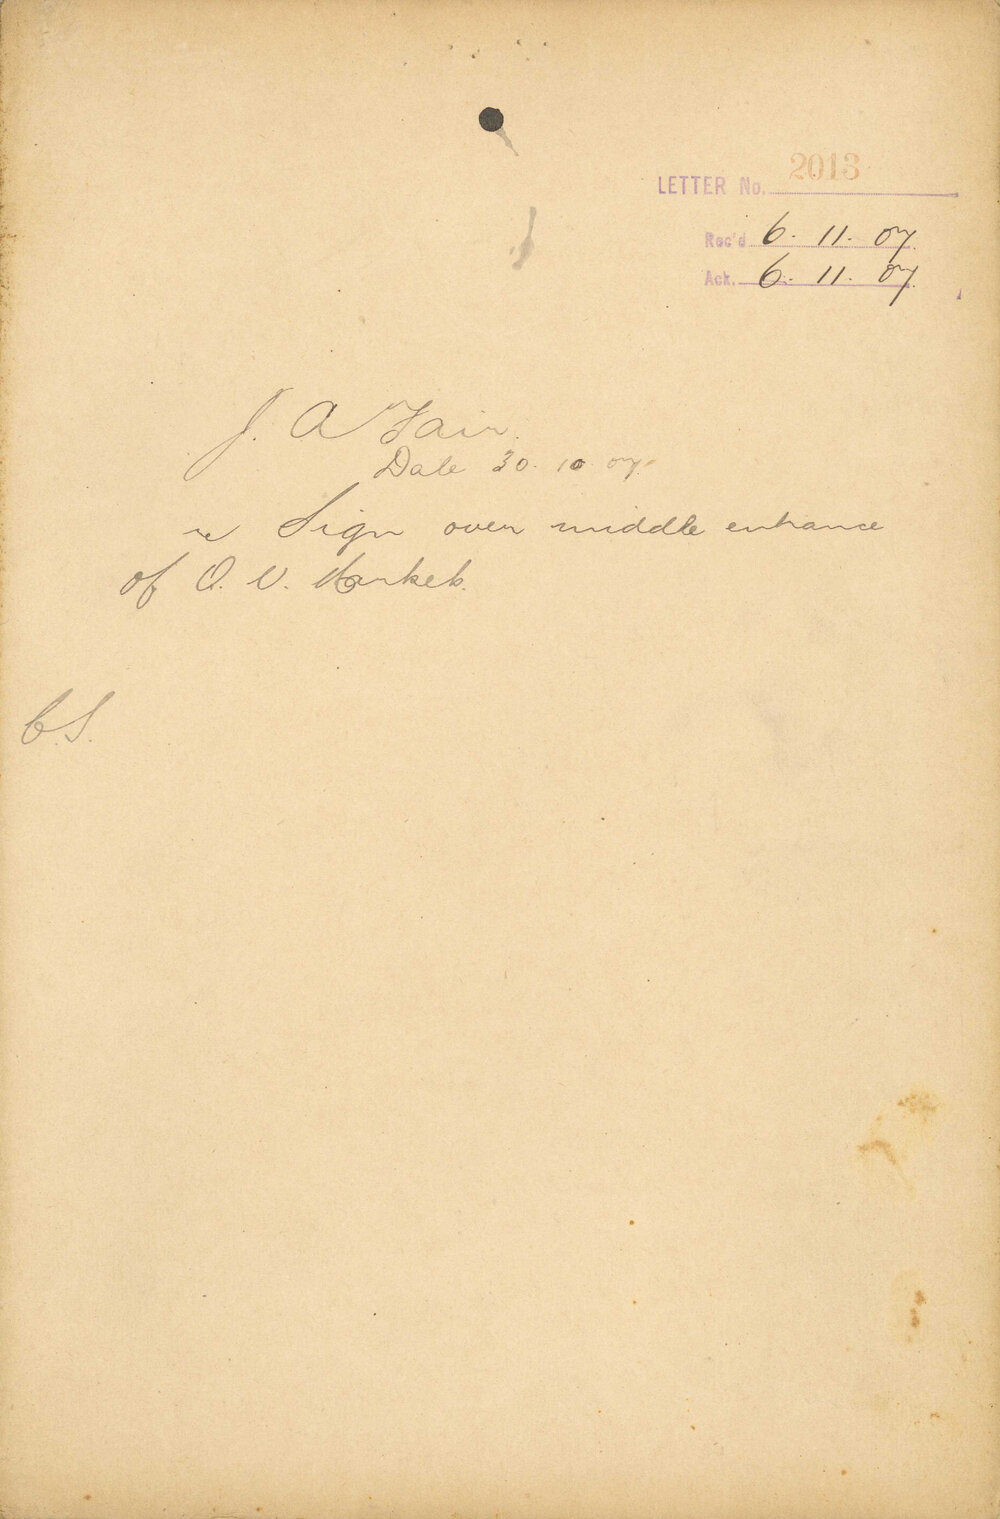 LETTER No. 2013
Rec'd 6. 11. 07.
Ack. 6. 11. 07.
J. A Fair.
Date 30. 10. 07.
re Sign over middle entrance
of Q. V. Markets.
C.S.